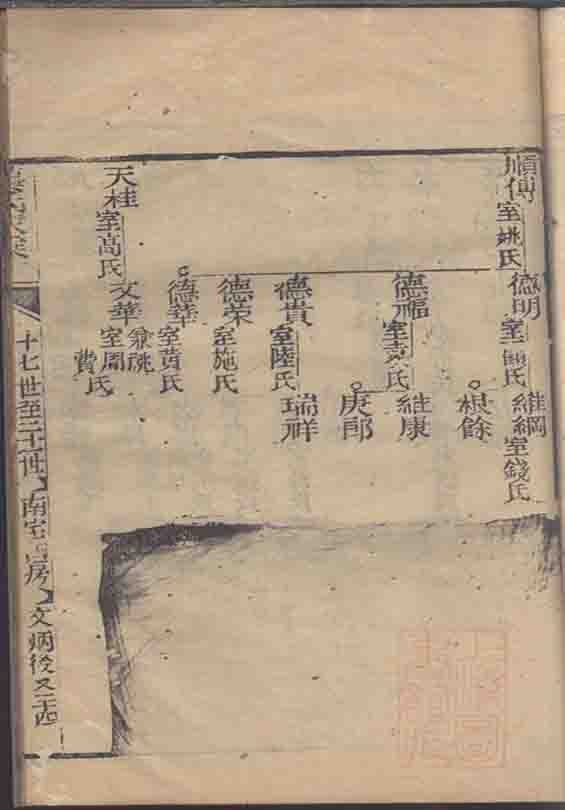 順傳 室姚氏
德明 室 氏
維綱 室錢氏
根餘
德福 室 氏
維康
庚郎
德貴 室陸氏
瑞祥
德榮 室施氏
德華 室黃氏
天桂 室高氏
文華 兼祧 室周氏
費氏
十七世至二十一世 南宅 房 文炳後又二十四